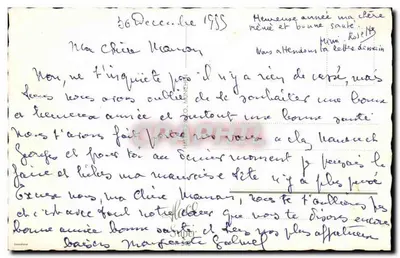 30 Decembre 1955
Heureuse année ma chère
mémé et bonne santé.
Vous attendons ta lettre demain
Ma Chère Maman
Non, ne t'inquiète pas il n'y a rien de cassé, mais
nous avons oublié de te souhaiter une bonne
heureuse année et surtout une bonne santé
nous t'avons fait
Georges et pour toi au dernier moment je pensais le
faire et hélas ma mauvaise tête n'y a plus pensé
Excuse nous, ma Chère Maman, nous ne t'oublions pas
et c'est avec tout notre cœur que nous te disons encore
bonne année bonne santé et nos plus affectueux
baisers Marguerite Gabriel